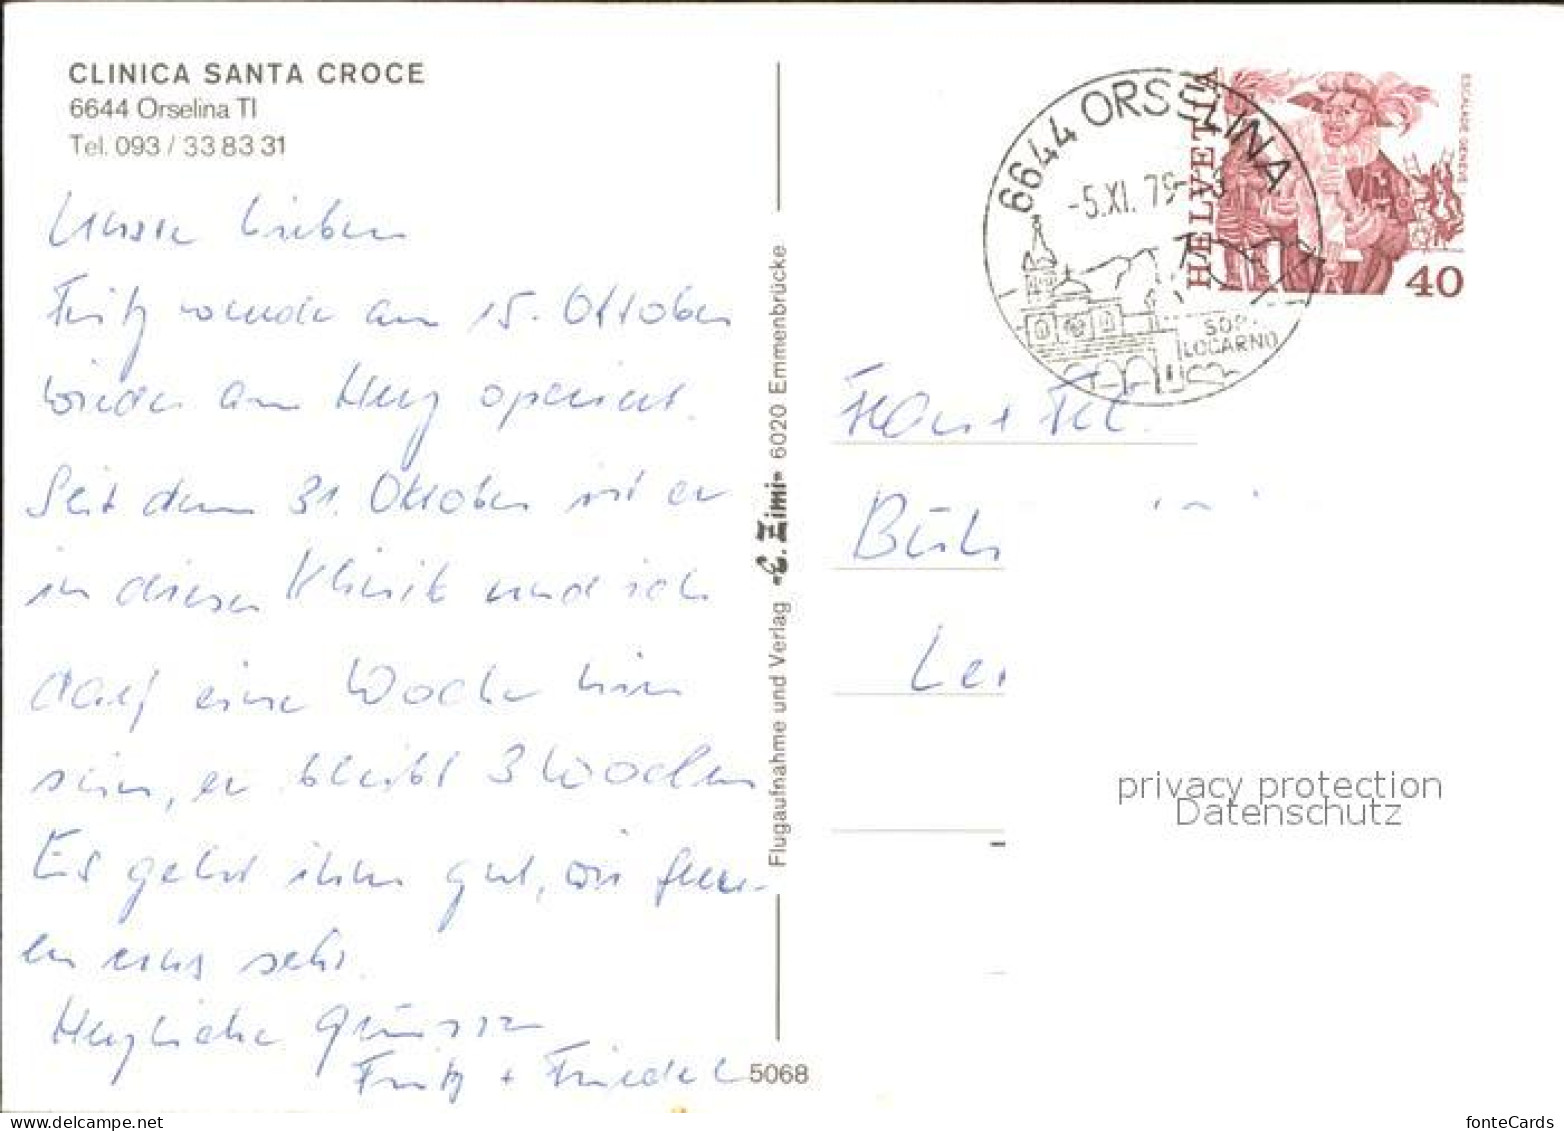 CLINICA SANTA CROCE
6644 Orselina TI
Tel. 093 / 33 83 31
Unsere Lieben
Fritz wurde am 15. Oktober
wieder am Herz operiert.
Seit dem 31. Oktober ist er
in dieser Klinik und ich
darf eine Woche hier
sein, er bleibt 3 Wochen
Es geht ihm gut, wir freu-
en uns sehr.
Herzliche Grüsse
Fritz + Friedel
Flugaufnahme und Verlag «E. Zimi» 6020 Emmenbrücke
5068
6644 ORSELINA
-5.XI. 79-
SOP.
LOCARNO
HELVETIA
ESCALADE GENEVE
40
privacy protection
Datenschutz
fonteCards